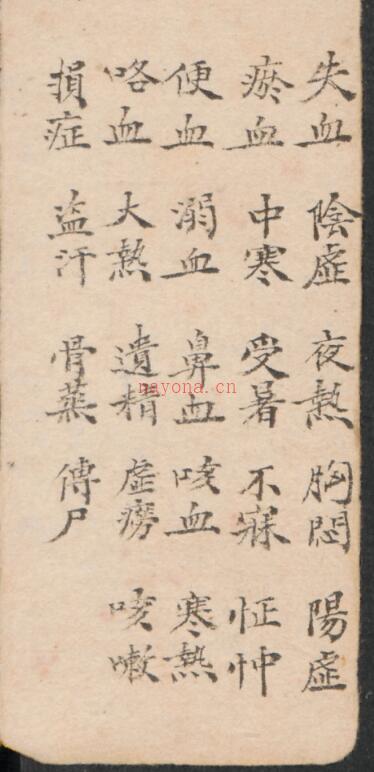 失血 陰虛 夜熱 胸悶 陽虛
瘀血 中寒 受暑 不寐 怔忡
便血 溺血 鼻血 咳血 寒熱
咯血 大熱 遺精 虛癆 咳嗽
損症 盜汗 骨蒸 傳尸
nayona.cn